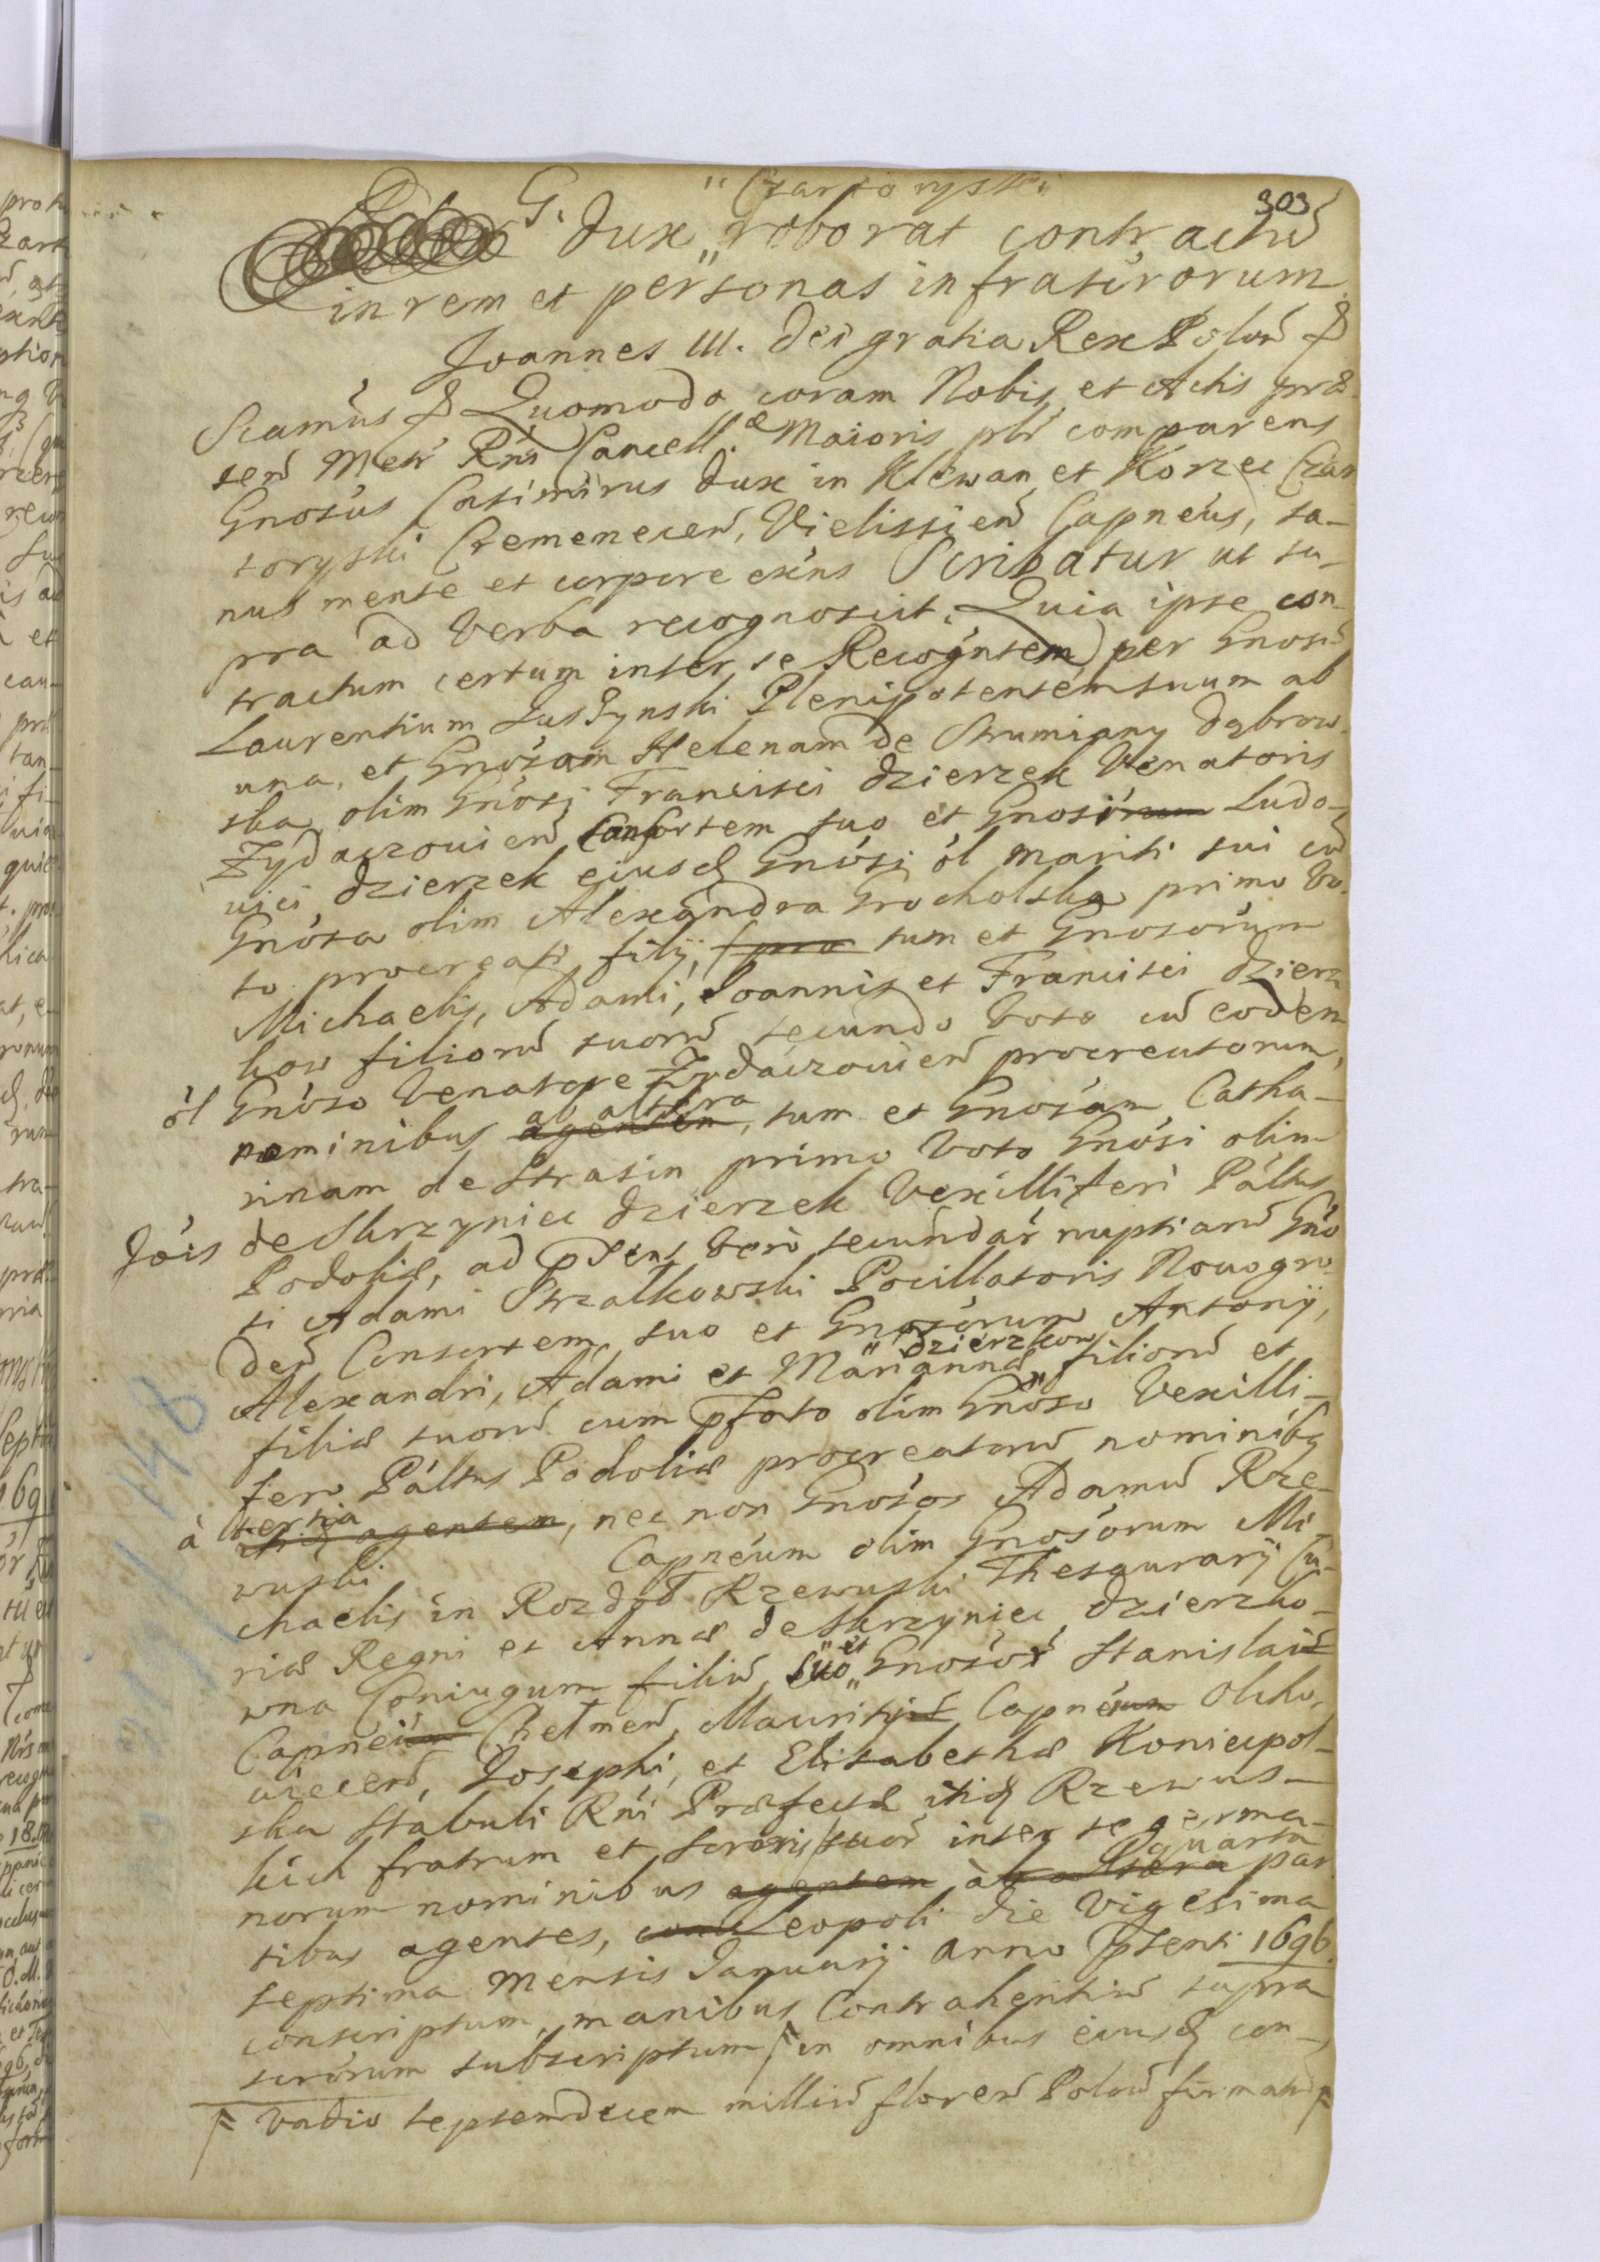 303
G. "Czartoryski"
Dux „ roborat contractū
in rem et personas infrascrorum
Joannes III. Dei gratia Rex Polon̄ &
Sciamus & Quomodo coram Nobis et Actis præ
sen̄ Metr̄ Rn̄i Cancell.æ Maioris pl̄r comparens
Gnosus Casimirus Dux in Klewan et Korzec Czar
toryski Cremenecen̄, Vielissien̄ Capneus, sa-
nus mente et corpore exēns Scribatur ut su-
pra ad verba recognoscit. Quia ipse con-
tractum certum inter se Recogntem per Gnosū
Laurentium Juszynski Plenipotentem suum ab
una, et Gnosam Helenam de Strumiany Dąbrow
ska olim Gnosi Francisci Dzierzek Venatoris
Zydaczouien̄ Consortem suo et Gnosi Ludo-
uici Dzierzek eiusd Gnosi ol mariti sui cū
Gnosa olim Alexandra Grocholska primo vo
to procreati filij, tum et Gnosorum
Michaelis, Adami, Joannis et Francisci Dzierz
kow filiorū suorū secundo voto cū eodem
ol Gnoso Venatore Zydaczouien̄ procreatorum,
nominibus ab altera, tum et Gnosam Catha-
rinam de Strasin primo voto Gnosi olim
Jois de Skrzyniec Dzierzek Vexilliferi Paltus
Podoliæ, ad psens vero secundar nuptiarū Gno
si Adami Strzalkowski Pocillatoris Nouogro
den̄ Consortem suo et Gnosorum Antonij,
Alexandri, Adami et Mariannæ „Dzierzkow" filiorū et
filiæ suorū cum pfato olim Gnoso Vexilli-
fero Paltus Podoliæ procreatorū nominibq
à tertia, nec non Gnosos Adamū Rze-
wuski Capneum olim Gnosorum Mi-
chaelis in Rozdoł Rzewuski Thesaurarij Cu-
riæ Regni et Annæ de Skrzyniec Dzierzko-
wna Coniugum filiū, suo „et" Gnosor Stanislai
Capnei Chełmen̄, Mauritij Capnei Olcho,
uiecen̄, Josephi, et Elisabethæ Koniecpol-
ska Stabuli Rn̄i Præfectæ itid Rzewus-
kich fratrum et sororis suor inter se germa-
norum nominibus à quarta par
tibus agentes, Leopoli die Vigesima
septima Mensis Januarij anno psenti 1696
conscriptum, manibus Contrahentiū supra
scrorum subscriptum, in omnibus eiusd con-
Vadio septemdecem milliū floren̄ Polon̄ firmatū